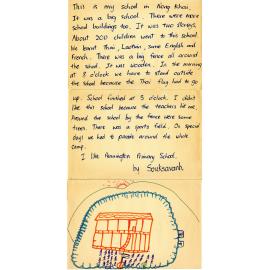 This is my school in Nong Khai.
It was a big school. There were more
school buildings too. It was two storeys.
About 200 children went to this school.
We learnt Thai, Laotian, some English and
french. There was a big fence all around
the school. It was wooden. In the morning
at 8 o'clock we have to stand outside
the school because the Thai flag had to go
up. School finished at 3 o'clock. I didn't
like this school because the teachers hit me.
Around the school by the fence were some
trees. There was a sports field. On special
days we had to parade around the whole
camp.
I like Pennington Primary School.
by Souksavanh